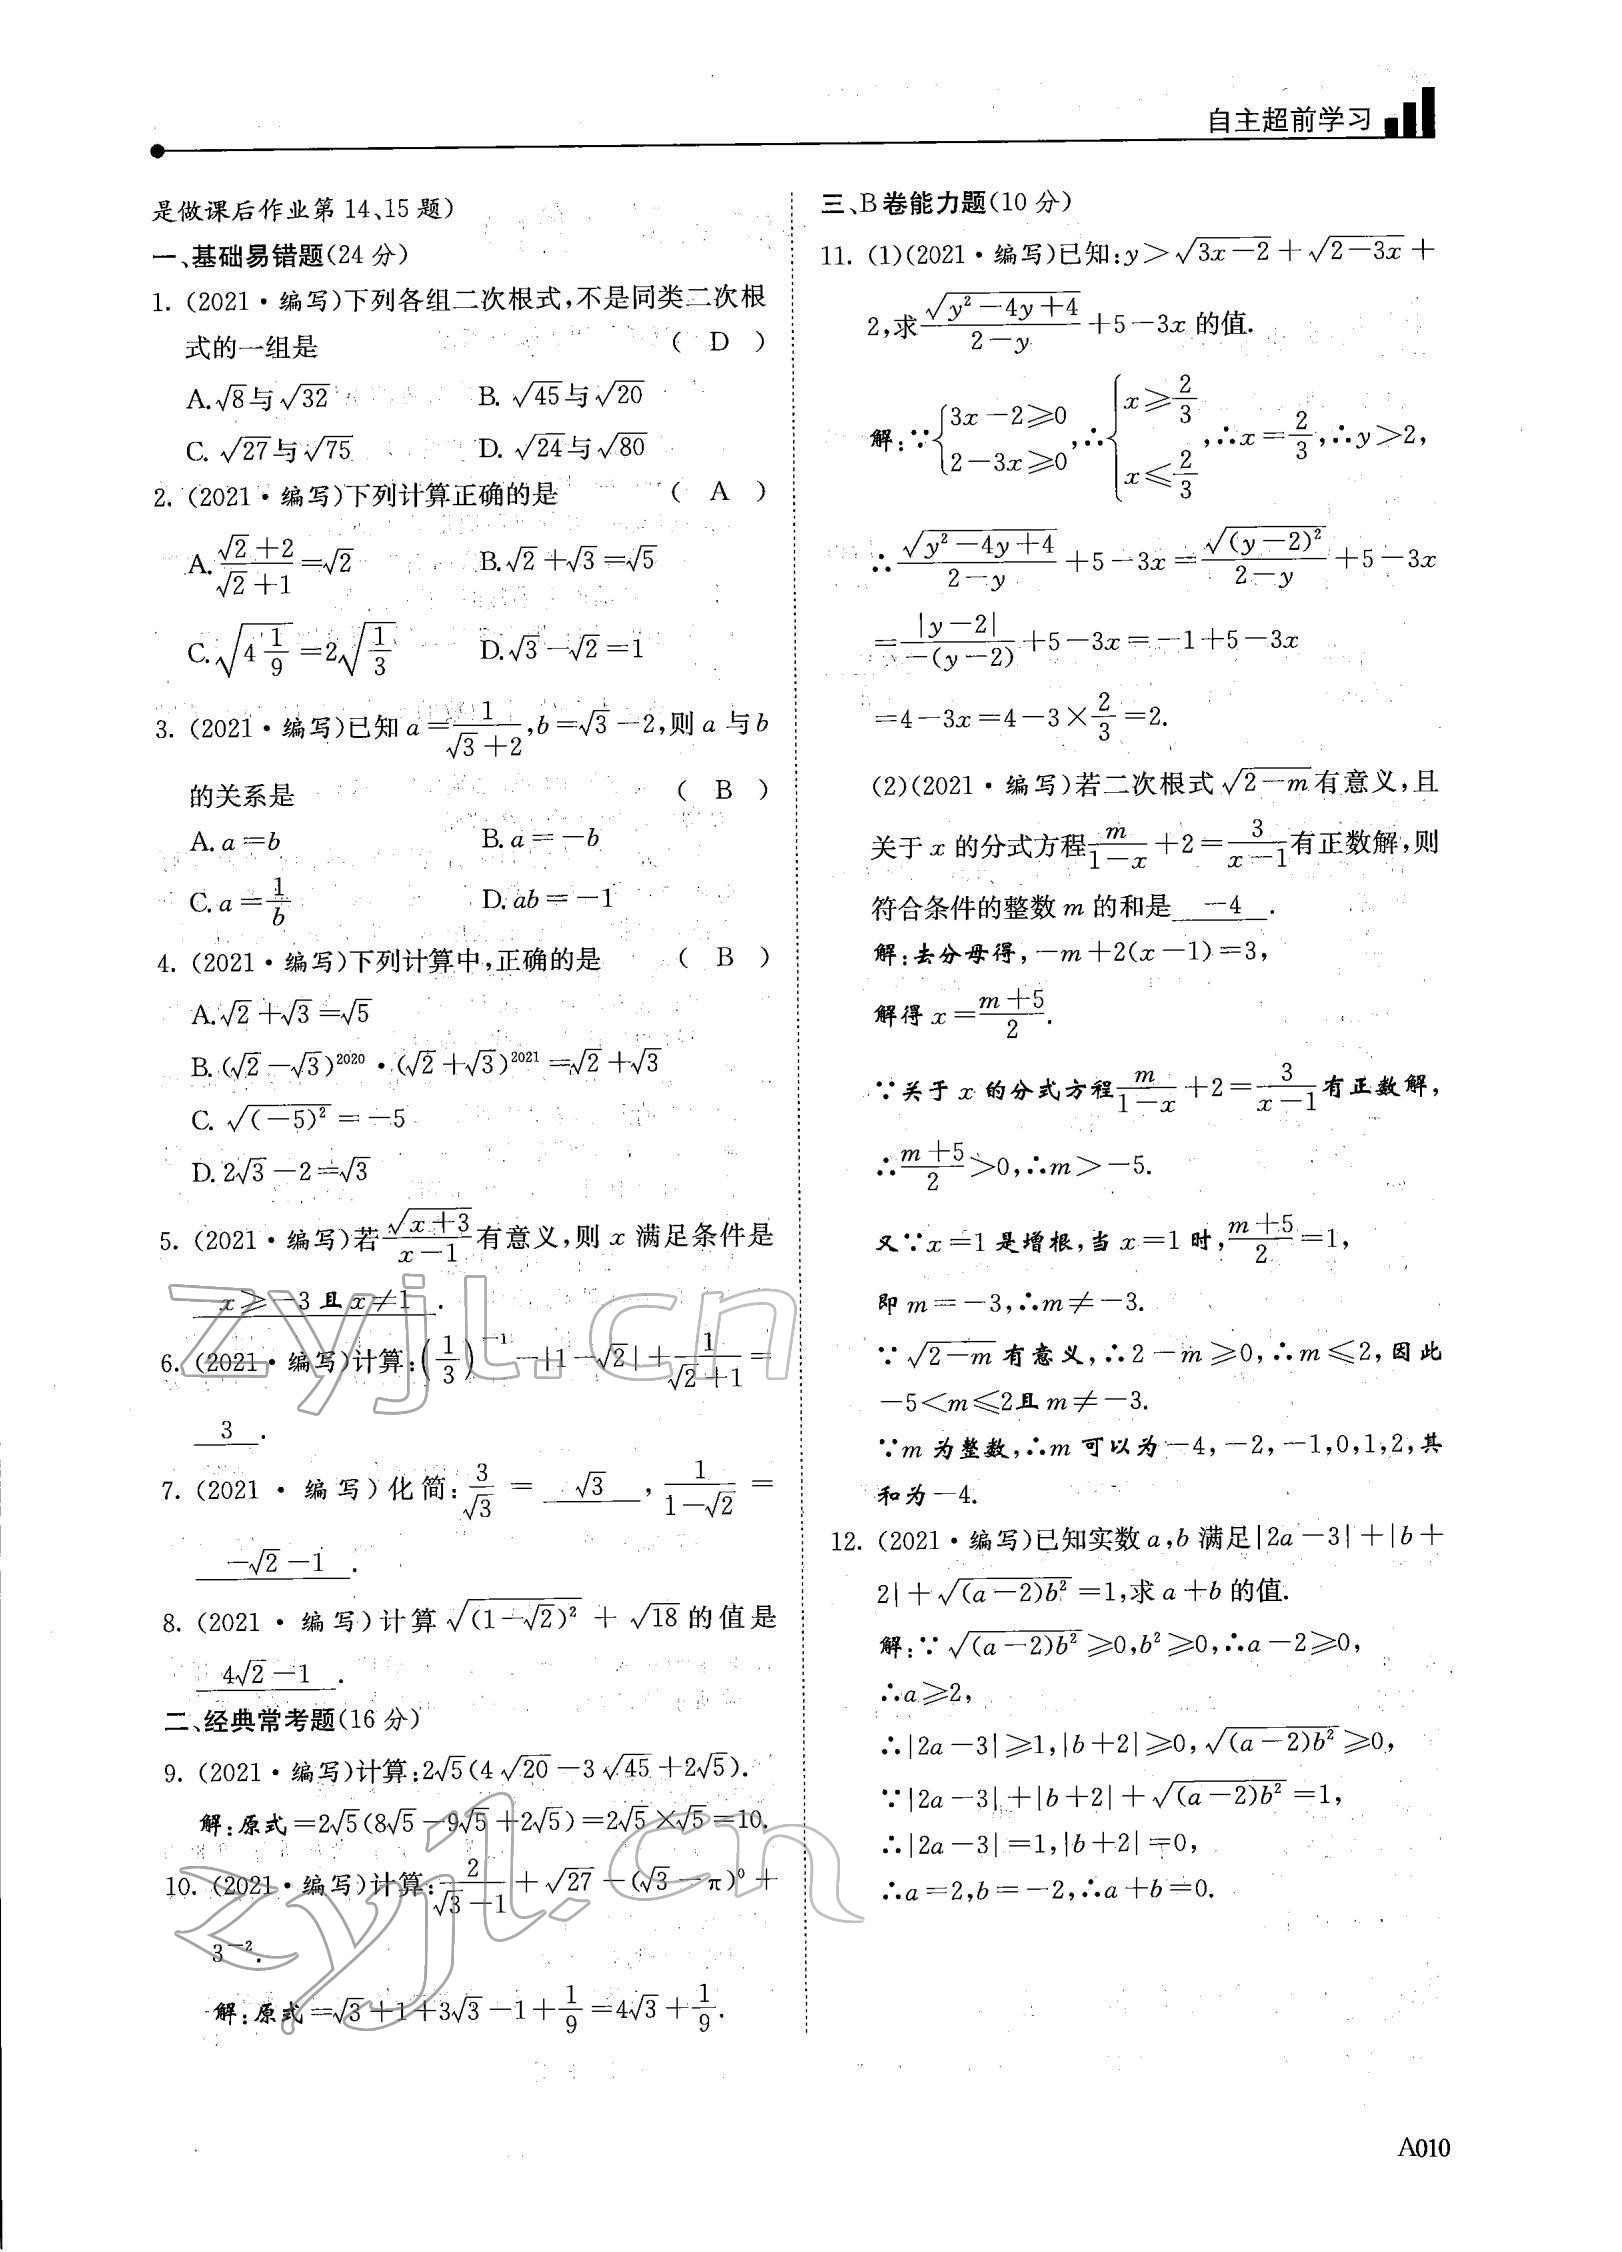 自主超前学习
是做课后作业第14、15题)
一、基础易错题(24分)
1. (2021·编写)下列各组二次根式,不是同类二次根
式的一组是 ( D )
A. √8与√32 B. √45与√20
C. √27与√75 D. √24与√80
2. (2021·编写)下列计算正确的是 ( A )
A. (√2+2)/(√2+1)=√2 B. √2+√3=√5
C. √(4 1/9)=2√(1/3) D. √3-√2=1
3. (2021·编写)已知a=1/(√3+2),b=√3-2,则a与b
的关系是 ( B )
A. a=b B. a=-b
C. a=1/b D. ab=-1
4. (2021·编写)下列计算中,正确的是 ( B )
A. √2+√3=√5
B. (√2-√3)²⁰²⁰·(√2+√3)²⁰²¹=√2+√3
C. √((-5)²)=-5
D. 2√3-2=√3
5. (2021·编写)若√(x+3)/(x-1)有意义,则x满足条件是
x≥-3且x≠1.
6. (2021·编写)计算:(1/3)⁻¹-|1-√2|+1/(√2+1)=
3.
7. (2021·编写)化简:3/√3=√3,1/(1-√2)=
-√2-1.
8. (2021·编写)计算√((1-√2)²)+√18的值是
4√2-1.
二、经典常考题(16分)
9. (2021·编写)计算:2√5(4√20-3√45+2√5).
解:原式=2√5(8√5-9√5+2√5)=2√5×√5=10.
10. (2021·编写)计算:2/(√3-1)+√27-(√3-π)⁰+
3⁻².
解:原式=√3+1+3√3-1+1/9=4√3+1/9.
三、B卷能力题(10分)
11. (1)(2021·编写)已知:y>√(3x-2)+√(2-3x)+
2,求√(y²-4y+4)/(2-y)+5-3x的值.
解:∵{3x-2≥0, 2-3x≥0,∴{x≥2/3, x≤2/3,∴x=2/3,∴y>2,
∴√(y²-4y+4)/(2-y)+5-3x=√((y-2)²)/(2-y)+5-3x
=|y-2|/(-(y-2))+5-3x=-1+5-3x
=4-3x=4-3×2/3=2.
(2)(2021·编写)若二次根式√(2-m)有意义,且
关于x的分式方程m/(1-x)+2=3/(x-1)有正数解,则
符合条件的整数m的和是-4.
解:去分母得,-m+2(x-1)=3,
解得x=(m+5)/2.
∵关于x的分式方程m/(1-x)+2=3/(x-1)有正数解,
∴(m+5)/2>0,∴m>-5.
又∵x=1是增根,当x=1时,(m+5)/2=1,
即m=-3,∴m≠-3.
∵√(2-m)有意义,∴2-m≥0,∴m≤2,因此
-5<m≤2且m≠-3.
∵m为整数,∴m可以为-4,-2,-1,0,1,2,其
和为-4.
12. (2021·编写)已知实数a,b满足|2a-3|+|b+
2|+√((a-2)b²)=1,求a+b的值.
解:∵√((a-2)b²)≥0,b²≥0,∴a-2≥0,
∴a≥2,
∴|2a-3|≥1,|b+2|≥0,√((a-2)b²)≥0,
∵|2a-3|+|b+2|+√((a-2)b²)=1,
∴|2a-3|=1,|b+2|=0,
∴a=2,b=-2,∴a+b=0.
zyjl.cn
zyjl.cn
A010